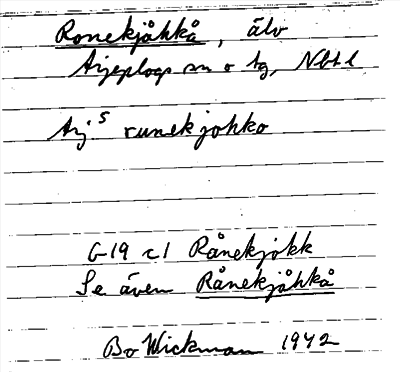 Ronekjåhkå, älv
Arjeplogs sn o tg, Nbt l
Arj S runekjohko
G19 c1 Rånekjokk
Se även Rånekjåhkå
Bo Wickman 1942